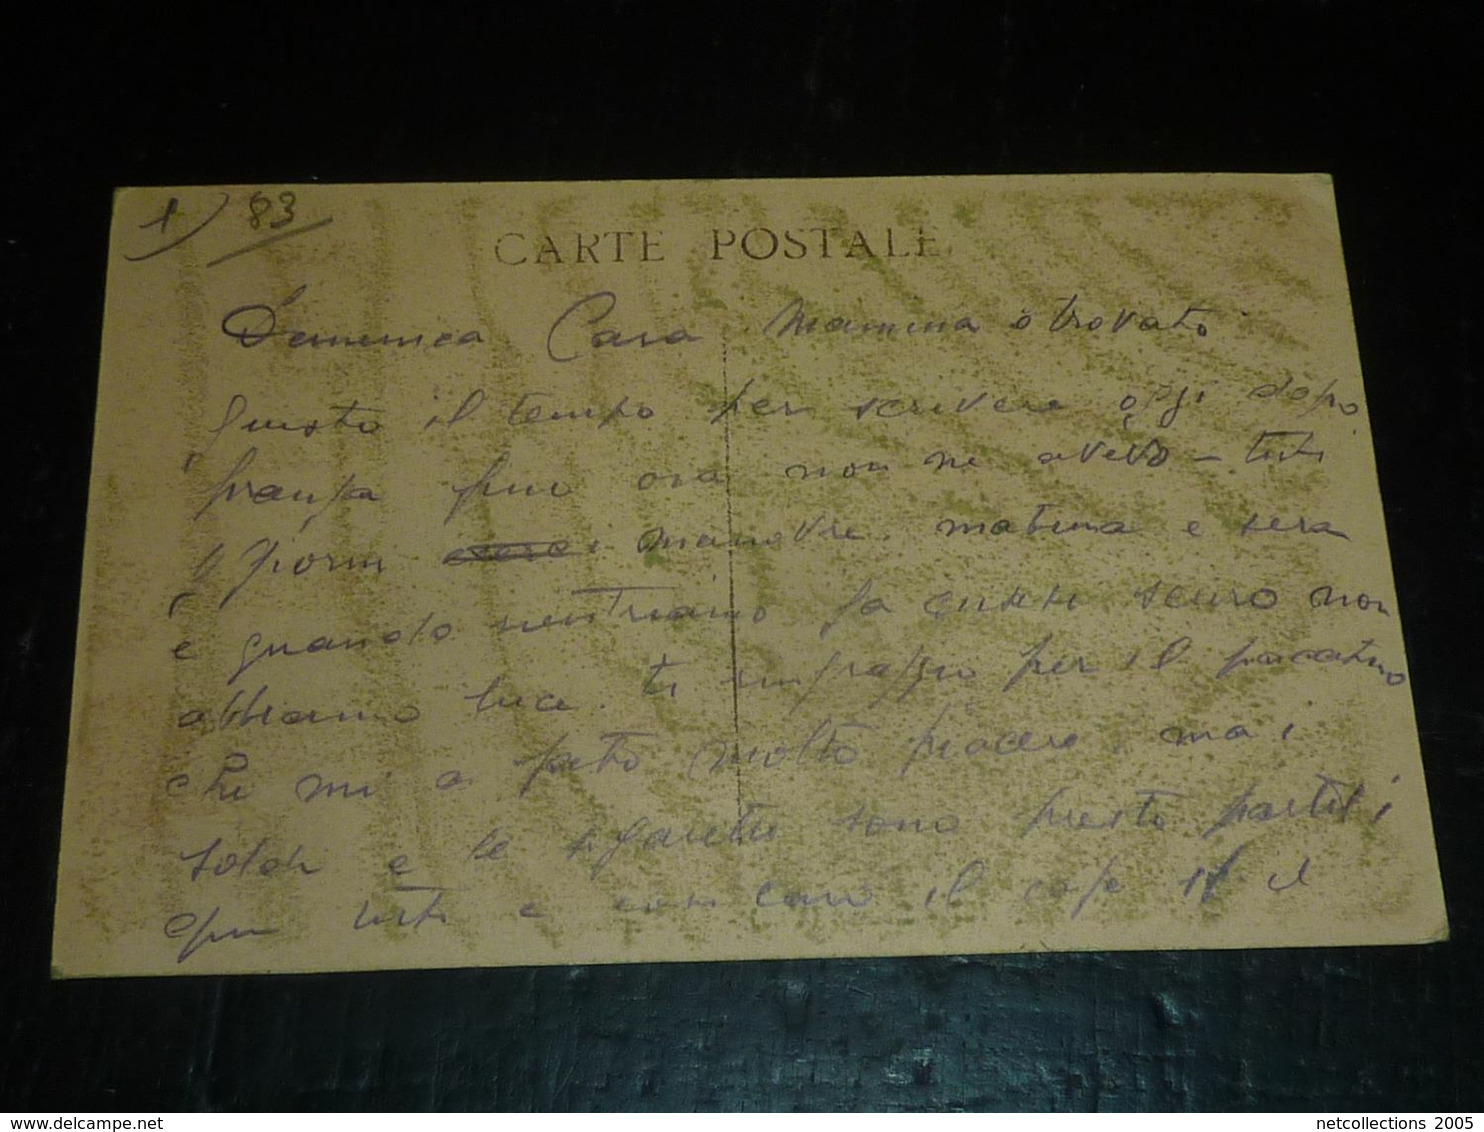 1) 83
CARTE POSTALE
Domenica Cara Mamma ò trovato
giusto il tempo per scrivere oggi dopo
pranza fino ora non ne avevo - tuti
i giorni manovre matina e sera
e quando rientriamo fa scuro non
abbiamo luce. ti ringrazio per il
che mi a fato molto piacere, ma i
soldi e le sigarette sono presto partiti
qui tuti e caro il cafe
netcollections 2005